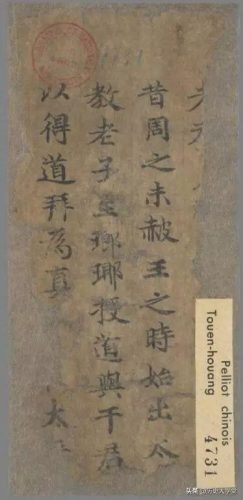 昔周之末赧王之時始出
教老子至瑯琊授道與干君
以得道拜爲真 太
Pelliot chinois
Touen-houang
4731
头条